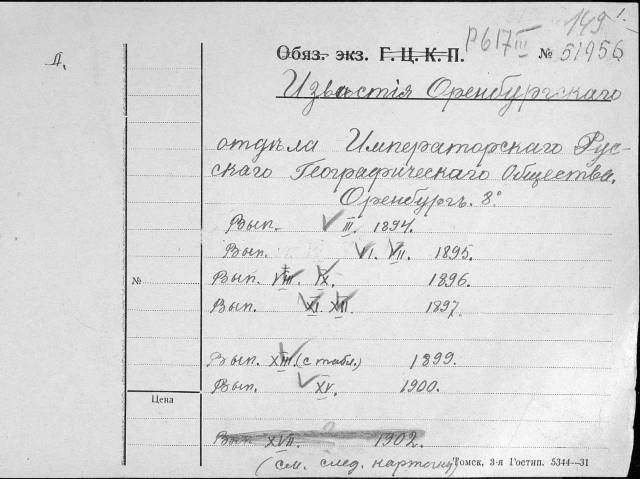 Д.
Р617 III 149 1.
Обяз. экз. Г. Ц. К. П. № 51956
Извѣстія Оренбургскаго
отдѣла Императорскаго Рус-
скаго Географическаго Общества.
Оренбургъ. 8°
Вып. III. 1894.
Вып. VI. VII. 1895.
№ Вып. VIII. IX. 1896.
Вып. XI. XII 1897.
Вып. XIII. (с табл.) 1899.
Вып. XV. 1900.
Цена
Вып. XVII. 1902.
(см. след. карточку)
Томск, 3-я Гостип. 5344—31